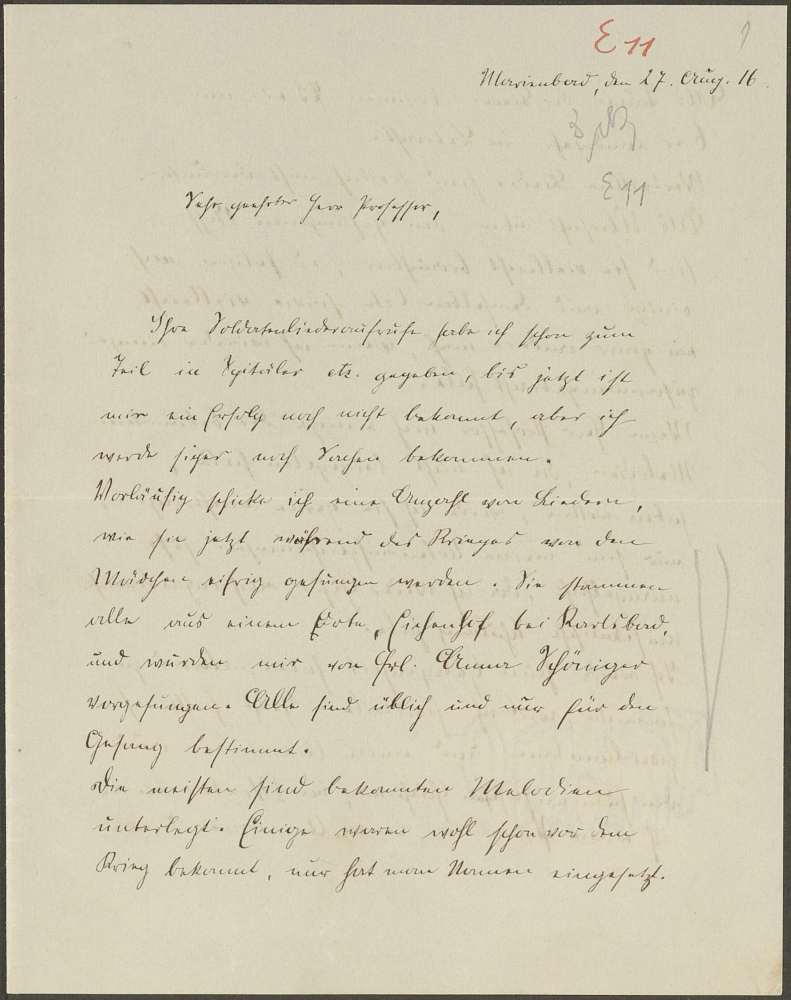 E 11
1
Marienbad, den 27. Aug. 16.
E 11
Sehr geehrter Herr Professor,
Ihre Soldatenliederaufrufe habe ich schon zum
Teil in Spitäler etc. gegeben, bis jetzt ist
mir ein Erfolg noch nicht bekannt, aber ich
werde sicher noch Sachen bekommen.
Vorläufig schicke ich eine Anzahl von Liedern,
wie sie jetzt während des Krieges von den
Mädchen eifrig gesungen werden. Sie stammen
alle aus einem Orte, Eichenhof bei Karlsbad,
und wurden mir von Frl. Anna Schöniger
vorgesungen. Alle sind üblich und nur für den
Gesang bestimmt.
Die meisten sind bekannten Melodien
unterlegt. Einige waren wohl schon vor dem
Krieg bekannt, nur hat man Namen eingesetzt.